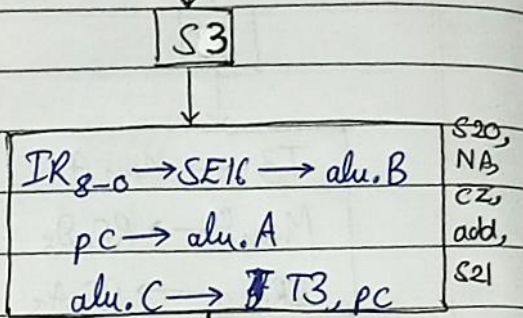 S3
IR8-0→SE16→alu.B
pc→alu.A
alu.C→T3, pc
S20,
NA,
CZ,
add,
S21